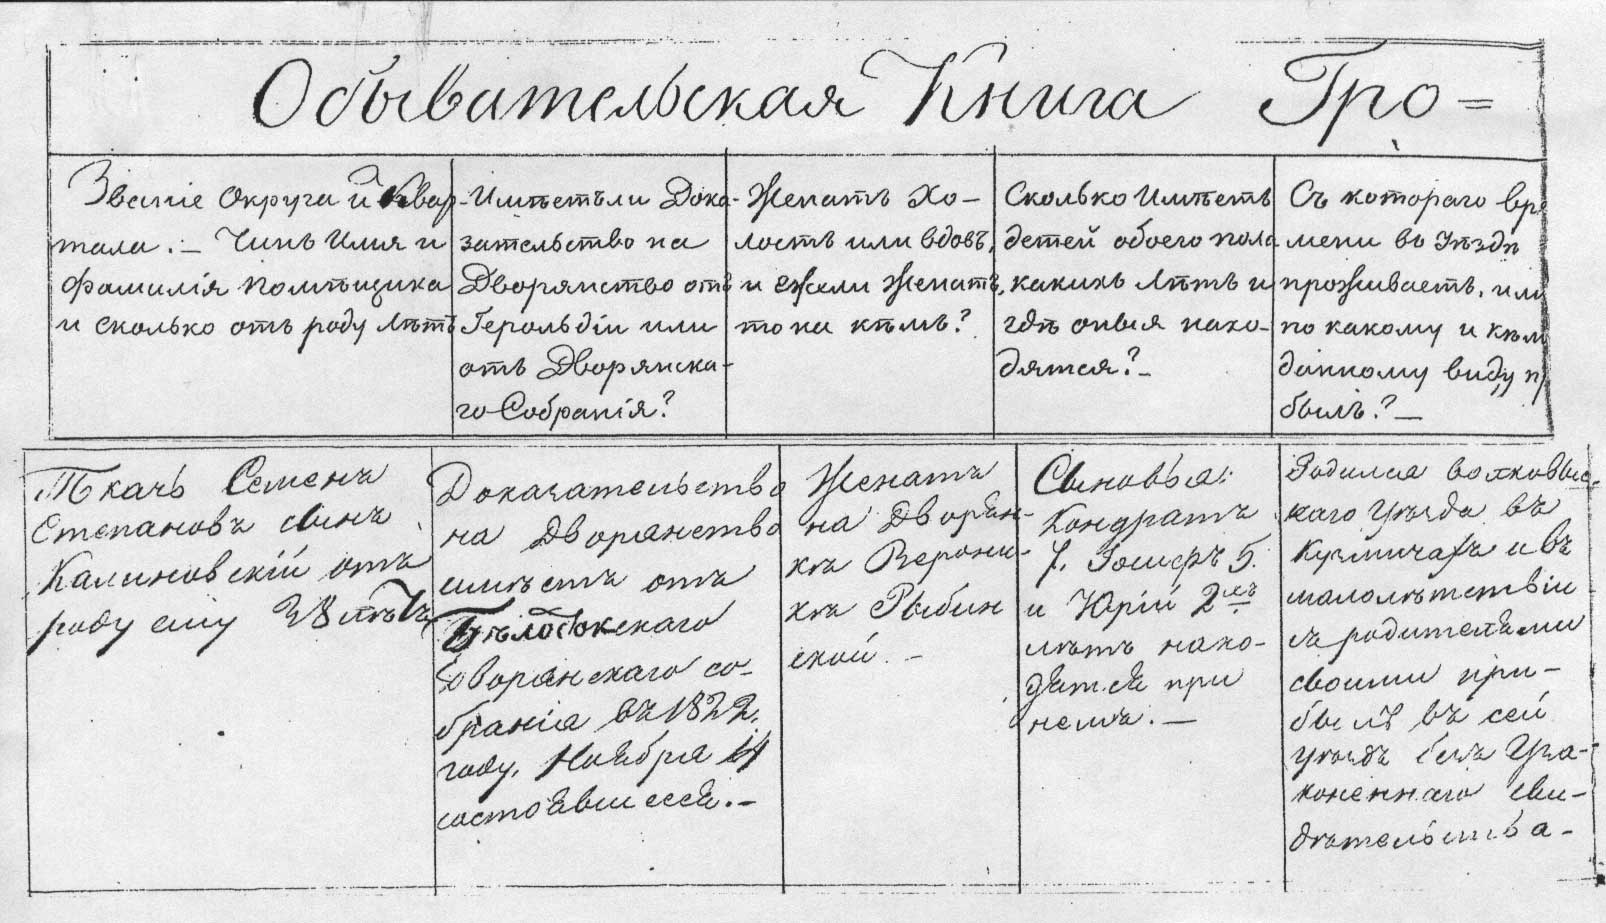 Обывательская Книга Гро=
Званіе Округа и Квар-
тала. — Чинъ Имя и
Фамилія помѣщика
и сколько отъ роду лѣтъ
Имѣетъ ли Дока-
зательство на
Дворянство отъ
Герольдіи или
отъ Дворянска-
го Собранія?
Женатъ Хо-
лостъ или вдовъ,
и ежели Женатъ,
то на кѣмъ?
Сколько Имѣетъ
детей обоего пола
какихъ лѣтъ и
гдѣ оныя нахо-
дятся? —
Съ котораго вре
мени во Уѣздѣ
проживаетъ, или
по какому и кѣм
данному виду пр
былъ? —
Ткачъ Семенъ
Степановъ сынъ
Калиновскій отъ
роду ему 38 лѣтъ
Доказательство
на Дворянство
имѣетъ отъ
Бѣлостокскаго
дворянскаго со-
бранія въ 1822
году, Ноября 14
состоявшееся. —
Женатъ
на Дворян-
кѣ Верони-
кѣ Рыбин
ской. —
Сыновья:
Кондратъ
7. Іосифъ 5.
и Юрій 2хъ
лѣтъ нахо-
дятся при
немъ. —
Родился волковыс-
каго уѣзда въ
Кузмичахъ и въ
малолѣтствіи
съ родителями
своими при-
былъ въ сей
уѣздъ безъ Уза-
коненнаго сви-
дѣтельства -